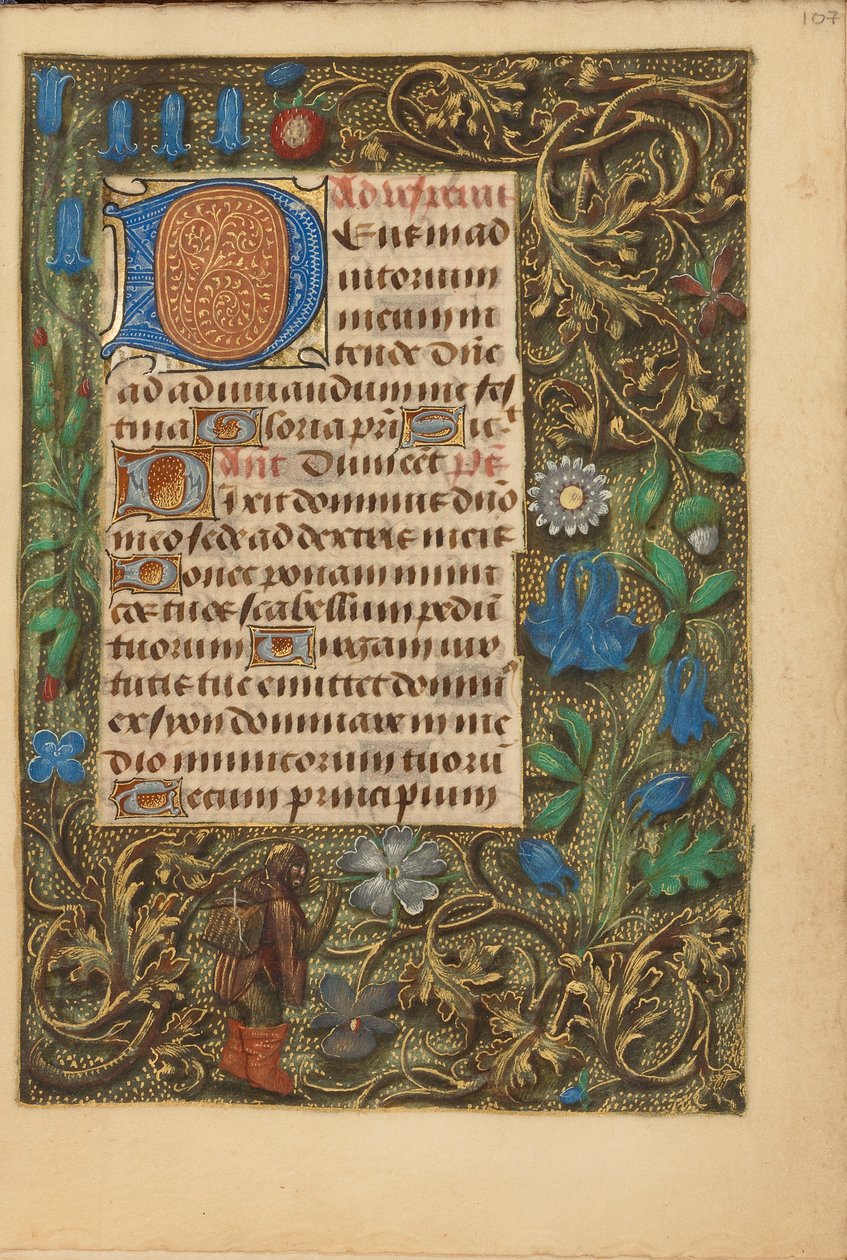 107
Ad
DEus in ad
iutorium
meum in
tende dn̄e
ad adiuuandum me fes
tina Gloria pr̄i Sic̄t
Añt Dum eēt Ps̄
Dixit dominus dn̄o
meo sede ad dextris meis
Donec ponam inimi
cos tuos scabellum pedū
tuorum Uirgam uir
tutis tue emittet domin̄
ex syon dominare in me
dio inimicorum tuorū
Tecum principium